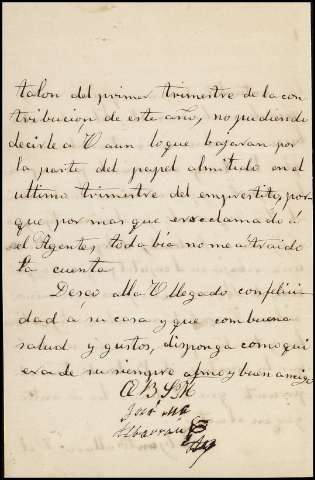 talon del primer trimestre de la con
tribucion de este año, no pudiendo
decirle á V aun loque bajaran por
la parte del papel almitido en el
ultimo trimestre del emprestito, por
que por mas que ereclamado á
el Agente, toda bia nomea traido
la cuenta
Deseo alla V llegado confelici
dad a su casa y que con buena
salud y gustos, disponga comoqui
era de su siempre afmo y buen amigo
Q B S M
José Ma